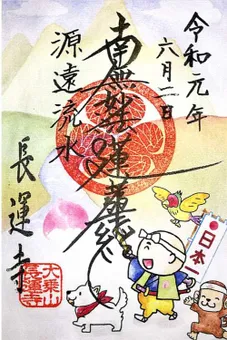 令和元年
六月二日
南無妙法蓮華経
源遠流水
長運寺
日本一
大乗山
長運寺